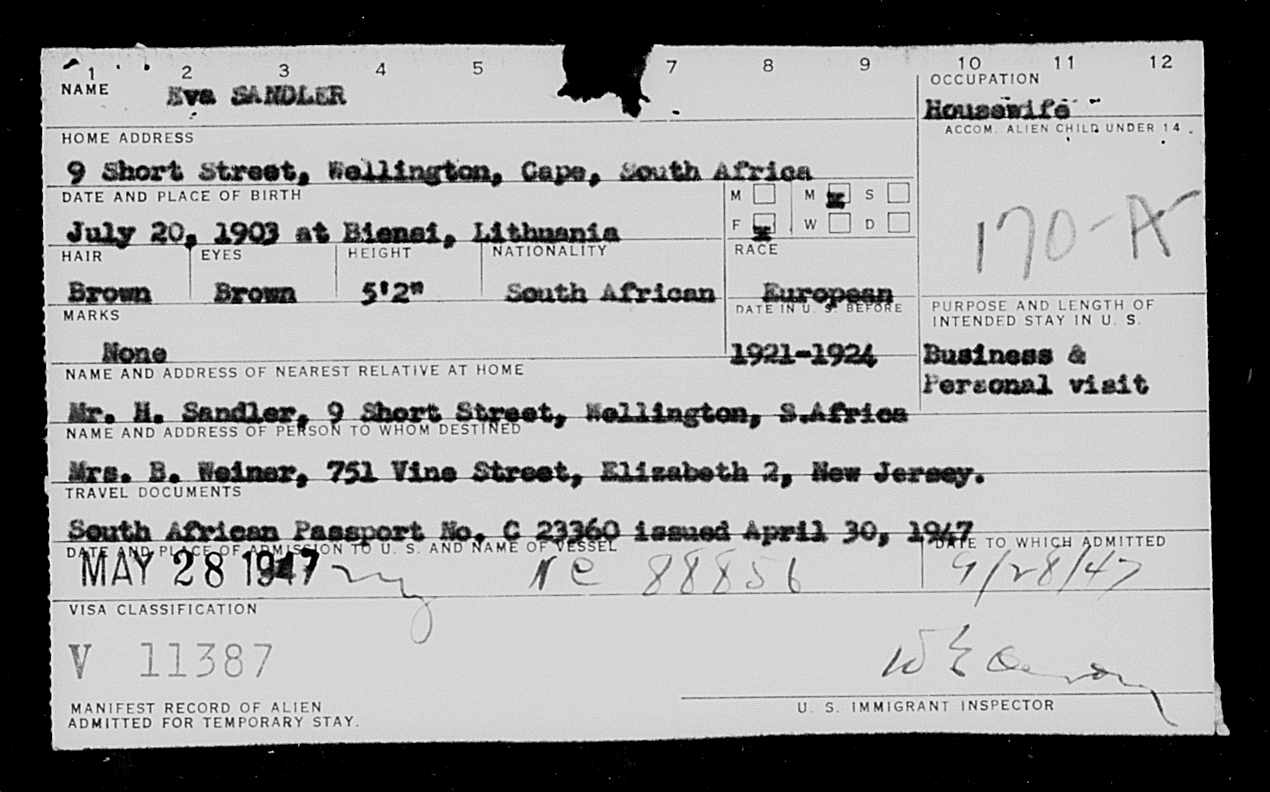 1 2 3 4 5 7 8 9 10 11 12
NAME Eva SANDLER
OCCUPATION
Housewife
HOME ADDRESS
ACCOM. ALIEN CHILD UNDER 14.
9 Short Street, Wellington, Cape, South Africa
DATE AND PLACE OF BIRTH
M M x S
July 20, 1903 at Biensi, Lithuania
F x W D
170-A
HAIR EYES HEIGHT NATIONALITY RACE
Brown Brown 5'2" South African European
MARKS
DATE IN U. S. BEFORE
PURPOSE AND LENGTH OF
INTENDED STAY IN U. S.
None 1921-1924
Business &
Personal visit
NAME AND ADDRESS OF NEAREST RELATIVE AT HOME
Mr. H. Sandler, 9 Short Street, Wellington, S.Africa
NAME AND ADDRESS OF PERSON TO WHOM DESTINED
Mrs. B. Weiner, 751 Vine Street, Elizabeth 2, New Jersey.
TRAVEL DOCUMENTS
South African Passport No. C 23360 issued April 30, 1947
DATE AND PLACE OF ADMISSION TO U. S. AND NAME OF VESSEL
DATE TO WHICH ADMITTED
MAY 28 1947 ny NC 88856 9/28/47
VISA CLASSIFICATION
V 11387
MANIFEST RECORD OF ALIEN
ADMITTED FOR TEMPORARY STAY.
U. S. IMMIGRANT INSPECTOR